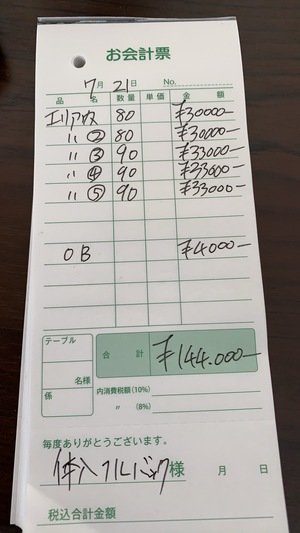 お会計票
7月21日 No.
品名 数量 単価 金額
エリアウス 80 ¥30000-
〃 ② 80 ¥30000-
〃 ③ 90 ¥33000-
〃 ④ 90 ¥33000-
〃 ⑤ 90 ¥33000-
OB ¥4000-
テーブル
合計 ¥144.000-
名様
係
内消費税額(10%)
〃 (8%)
毎度ありがとうございます。
体入フルバック様 月 日
税込合計金額